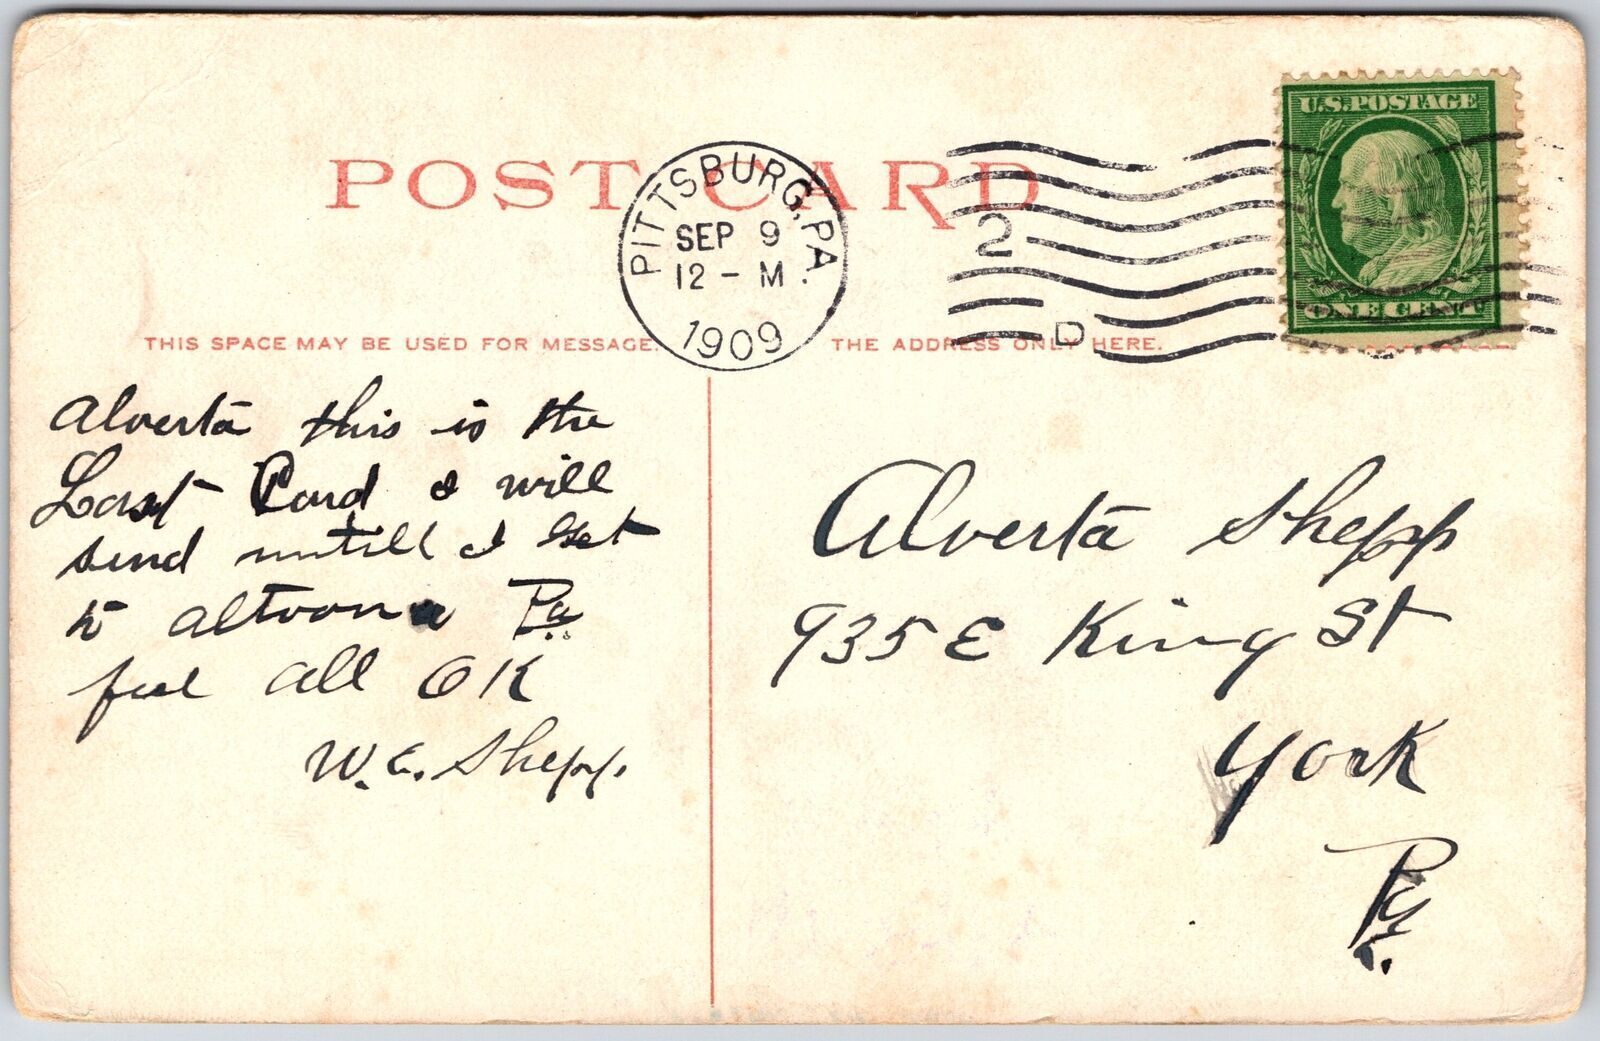 U.S. POSTAGE
ONE CENT
POST CARD
PITTSBURG, PA.
SEP 9
12 - M
1909
2
D
THIS SPACE MAY BE USED FOR MESSAGE.
THE ADDRESS ONLY HERE.
Alverta this is the
Last Card I will
send untill I Get
to altoona Pa
feel all OK
W. E. Shepp.
Alverta Shepp
935 E King St
York
Pa.